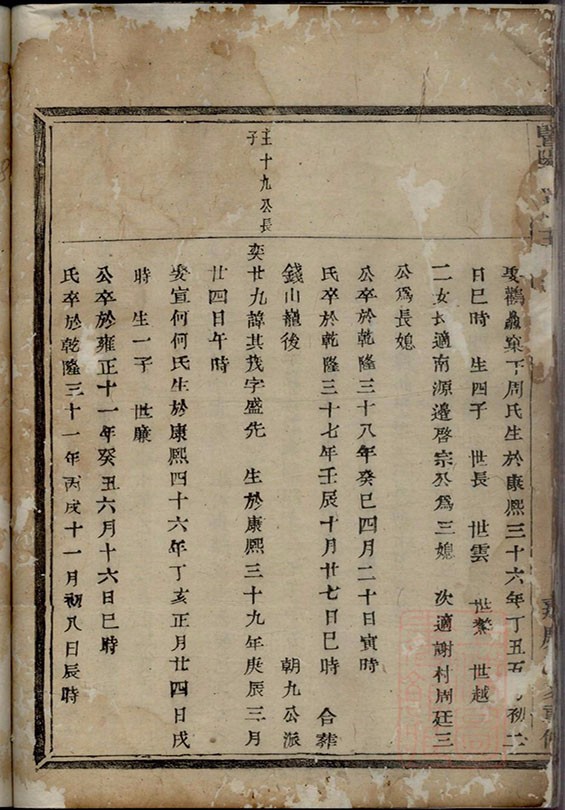 娶鸛蟲窠下周氏生於康熙三十六年丁丑五月初二
日巳時　生四子　世長　世雲　世鰲　世越
二女長適南源邊啓宗公爲三媳　次適謝村周廷三
公爲長媳
公卒於乾隆三十八年癸巳四月二十日寅時
氏卒於乾隆三十七年壬辰十月廿七日巳時　合葬
錢山龍後　朝九公派
圭十九公長
子
奕廿九諱其茂字盛先　生於康熙三十九年庚辰三月
廿四日午時
娶宣何何氏生於康熙四十六年丁亥正月廿四日戌
時　生一子　世廉
公卒於雍正十一年癸丑六月十六日巳時
氏卒於乾隆三十一年丙戌十一月初八日辰時